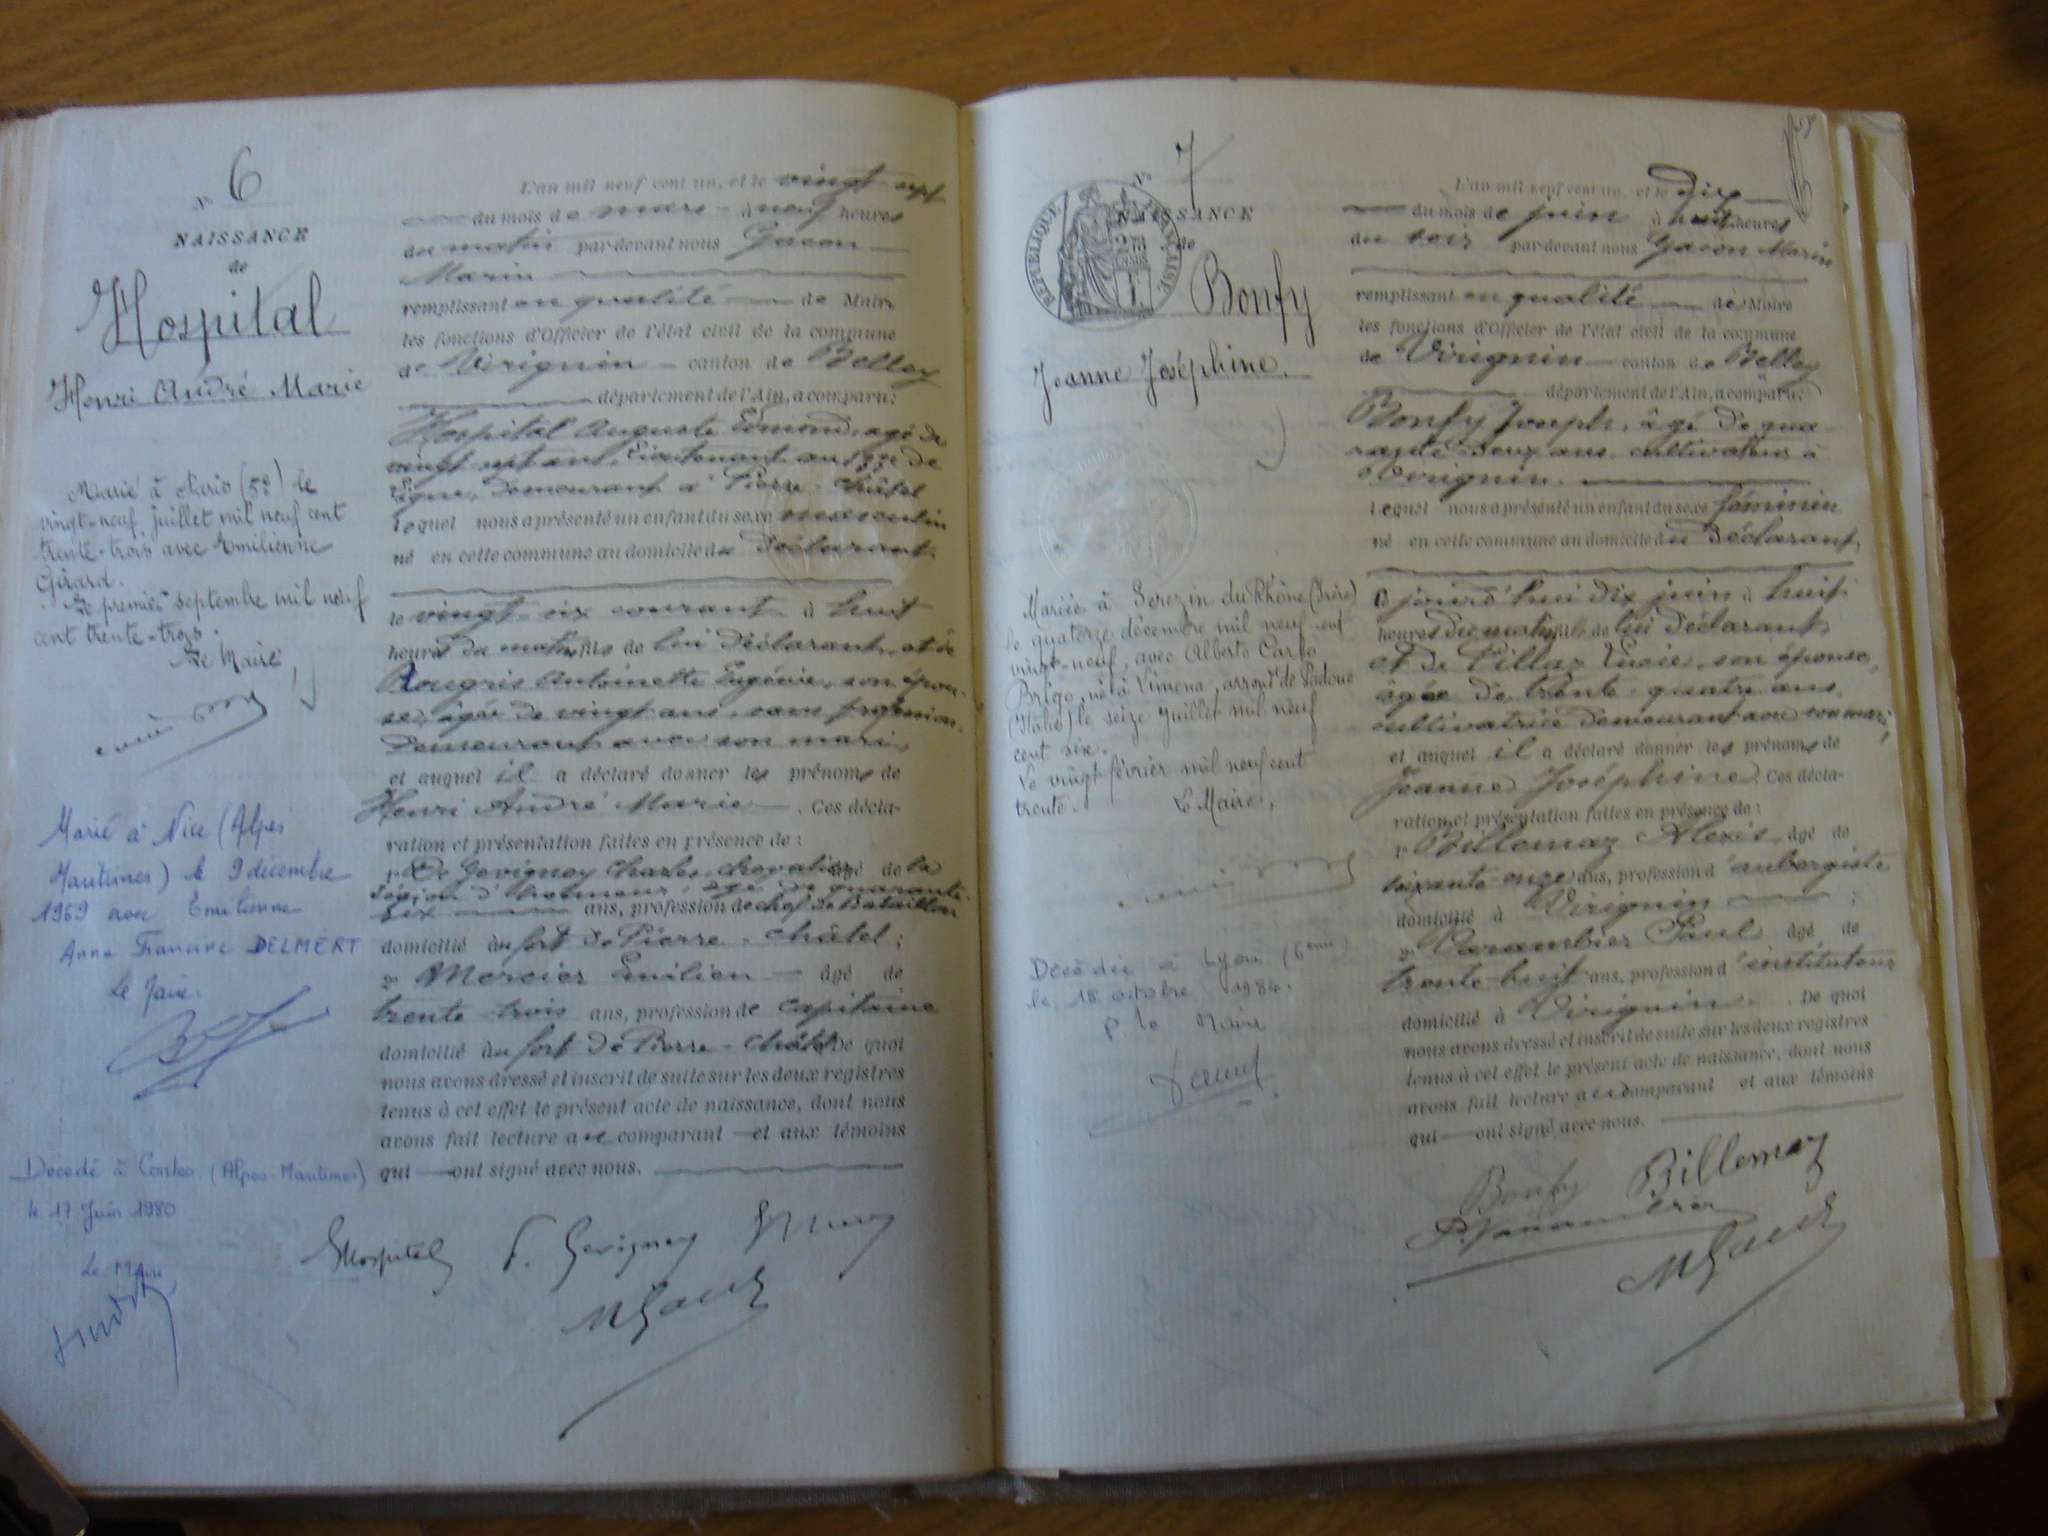 N° 6
NAISSANCE
de
Hospital
Henri André Marie
Marié à Paris (5e) le
vingt-neuf juillet mil neuf cent
trente-trois avec Emilienne
Girard.
Le premier septembre mil neuf
cent trente-trois.
Le Maire,
Marié à Nice (Alpes
Maritimes) le 9 décembre
1969 avec Emilienne
Anna Francine DELMERT
Le Maire
Décédé à Contes (Alpes-Maritimes)
le 17 Juin 1980
Le Maire
L'an mil neuf cent un, et le vingt sept
du mois de mars à neuf heures
du matin par-devant nous Gacon
Marin
remplissant en qualité de Maire
les fonctions d'Officier de l'état civil de la commune
de Virignin canton de Belley
département de l'Ain, a comparu:
Hospital Auguste Edmond, agé de
vingt sept ans, Lieutenant au de
ligne, demeurant à Pierre-Châtel
lequel nous a présenté un enfant du sexe masculin
né en cette commune au domicile du déclarant
le vingt-six courant à huit
heures du matin, fils de lui déclarant, et de
Rougris Antoinette Eugénie, son épou-
se, âgée de vingt ans, sans profession,
demeurant avec son mari,
et auquel il a déclaré donner les prénoms de
Henri André Marie. Ces décla-
ration et présentation faites en présence de:
1° De Gevigney Charles, chevalier de la
Légion d'honneur, âgé de quarante
six ans, profession de chef de Bataillon
domicilié au fort de Pierre-Châtel;
2° Mercier Emilien âgé de
trente trois ans, profession de capitaine
domicilié au fort de Pierre-Châtel De quoi
nous avons dressé et inscrit de suite sur les deux registres
tenus à cet effet le présent acte de naissance, dont nous
avons fait lecture au comparant et aux témoins
qui ont signé avec nous.
Hospital Gevigney
MGacon
N° 7
REPUBLIQUE FRANÇAISE
NAISSANCE
de
Bonfy
Jeanne Joséphine.
Mariée à Serezin du Rhône (Isère)
le quatorze décembre mil neuf cent
vingt-neuf, avec Alberto Carlo
Brigo, né à Limena, arrond' de Padoue
(Italie) le seize juillet mil neuf
cent six.
Le vingt février mil neuf cent
trente. Le Maire,
Décédée à Lyon (6ème)
le 18 octobre 1984.
p. le Maire
L'an mil neuf cent un, et le dix
du mois de juin à huit heures
du soir par-devant nous Gacon Marin
remplissant en qualité de Maire
les fonctions d'Officier de l'état civil de la commune
de Virignin canton de Belley
département de l'Ain, a comparu:
Bonfy Joseph, âgé de qua-
rante-deux ans, cultivateur à
Virignin.
lequel nous a présenté un enfant du sexe féminin
né en cette commune au domicile du déclarant,
jourd'hui dix juin à huit
heures du matin, fille de lui déclarant
et de Pillaz Lucie, son épouse,
âgée de trente-quatre ans,
cultivatrice demeurant avec son mari,
et auquel il a déclaré donner les prénoms de
Jeanne Joséphine. Ces décla-
ration et présentation faites en présence de:
1° Billemaz Alexis âgé de
soixante-onze ans, profession d'aubergiste
domicilié à Virignin;
2° Carambier Paul âgé de
trente-huit ans, profession d'instituteur
domicilié à Virignin. De quoi
nous avons dressé et inscrit de suite sur les deux registres
tenus à cet effet le présent acte de naissance, dont nous
avons fait lecture au comparant et aux témoins
qui ont signé avec nous.
Bonfy Billemaz
MGacon